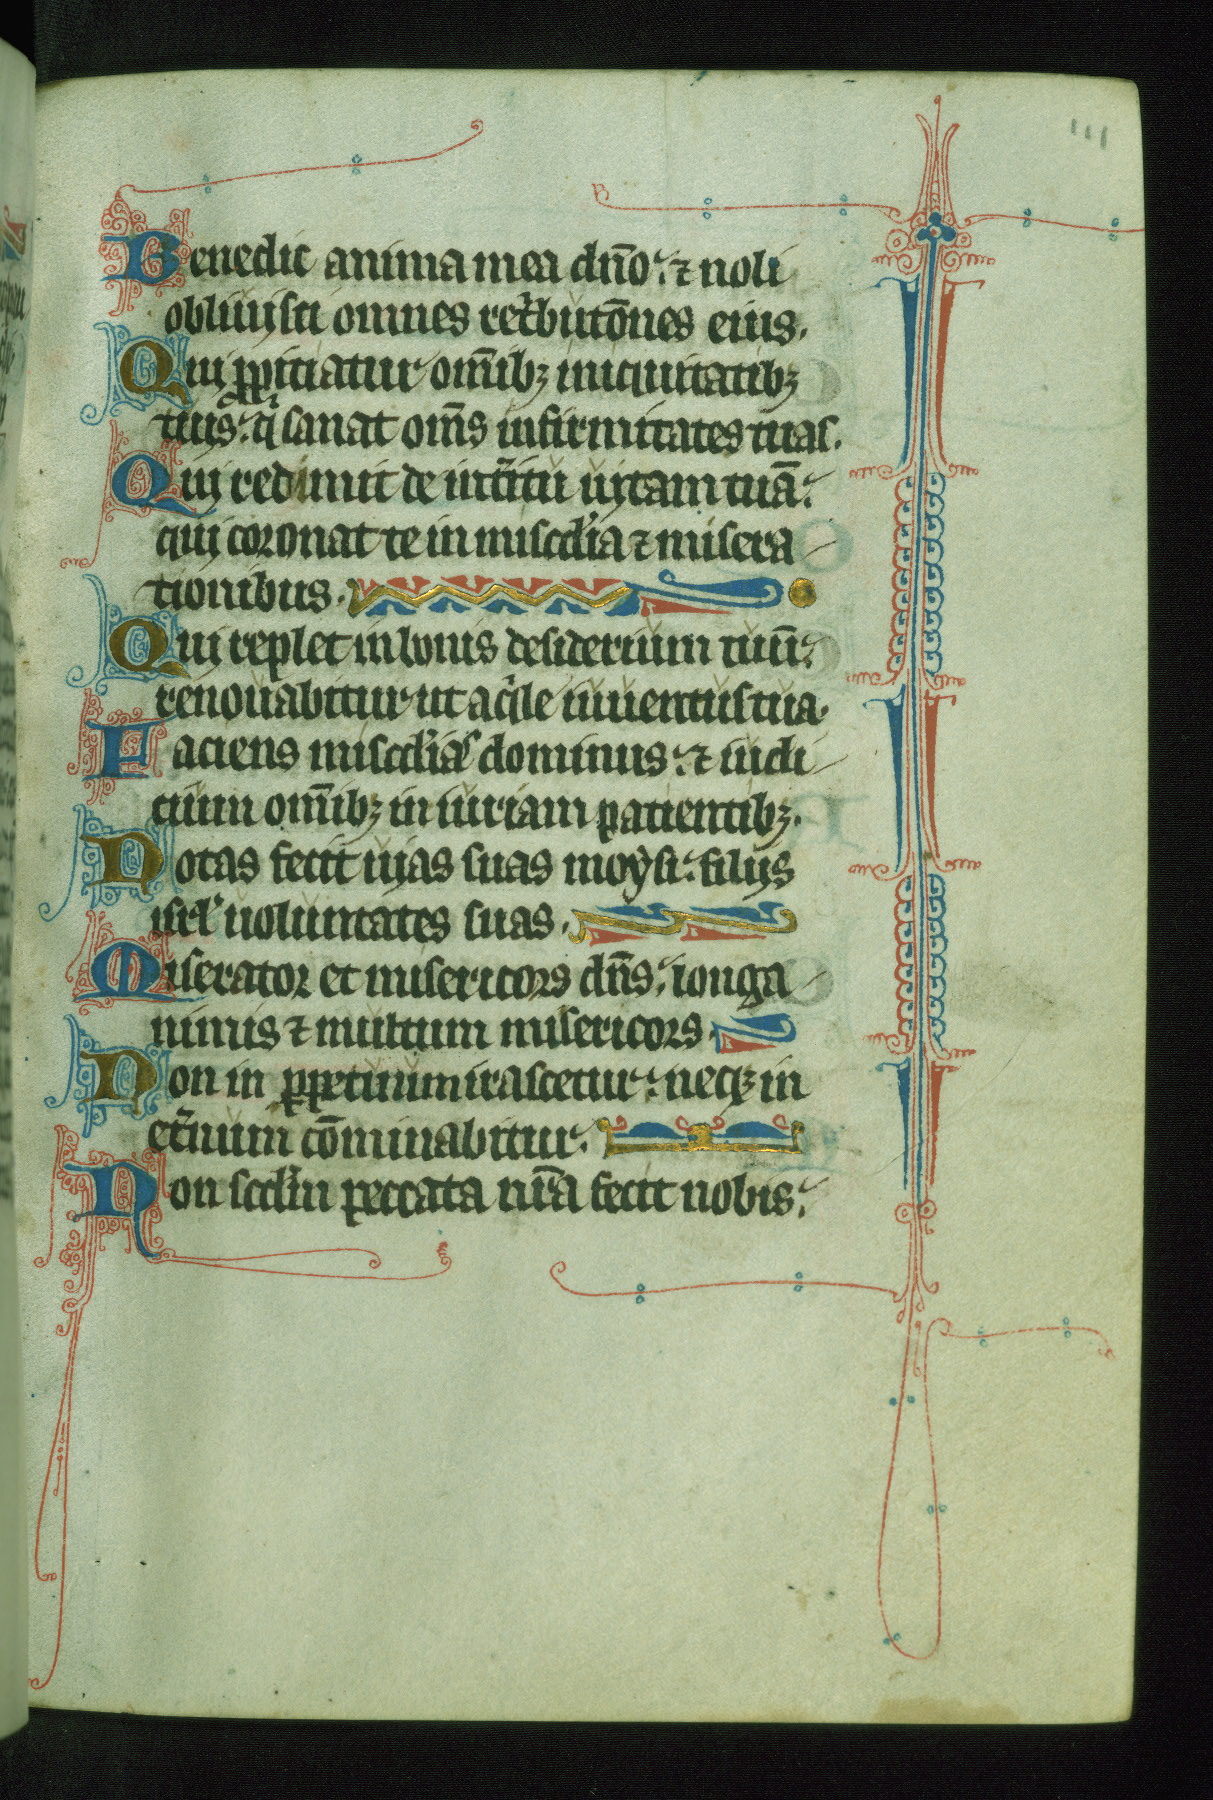 111
Benedic anima mea dn̄o: ⁊ noli
obliuisci omnes ret̃butōnes eius.
Qui ꝓpitiatur om̄ibꝫ iniquitatibꝫ
tuis: qͥ sanat om̄s infirmitates tuas.
Qui redimit de int̃itu uitam tuā:
qui coronat te in misc̃dia ⁊ misera
tionibus.
Qui replet in bonis desiderium tuū:
renouabitur ut aqͥle iuuentus tua.
Faciens misc̃dias dominus: ⁊ iudi
cium om̄ibꝫ in iuriam patientibꝫ.
Notas fecit uias suas moysi: filijs
isrl̃ uoluntates suas.
Miserator et misericors dn̄s: longa
nimis ⁊ multum misericors.
Non in ꝑpetuum irascetur: neqꝫ in
et̃num cōminabitur.
Non scd̃m peccata nr̃a fecit nobis: